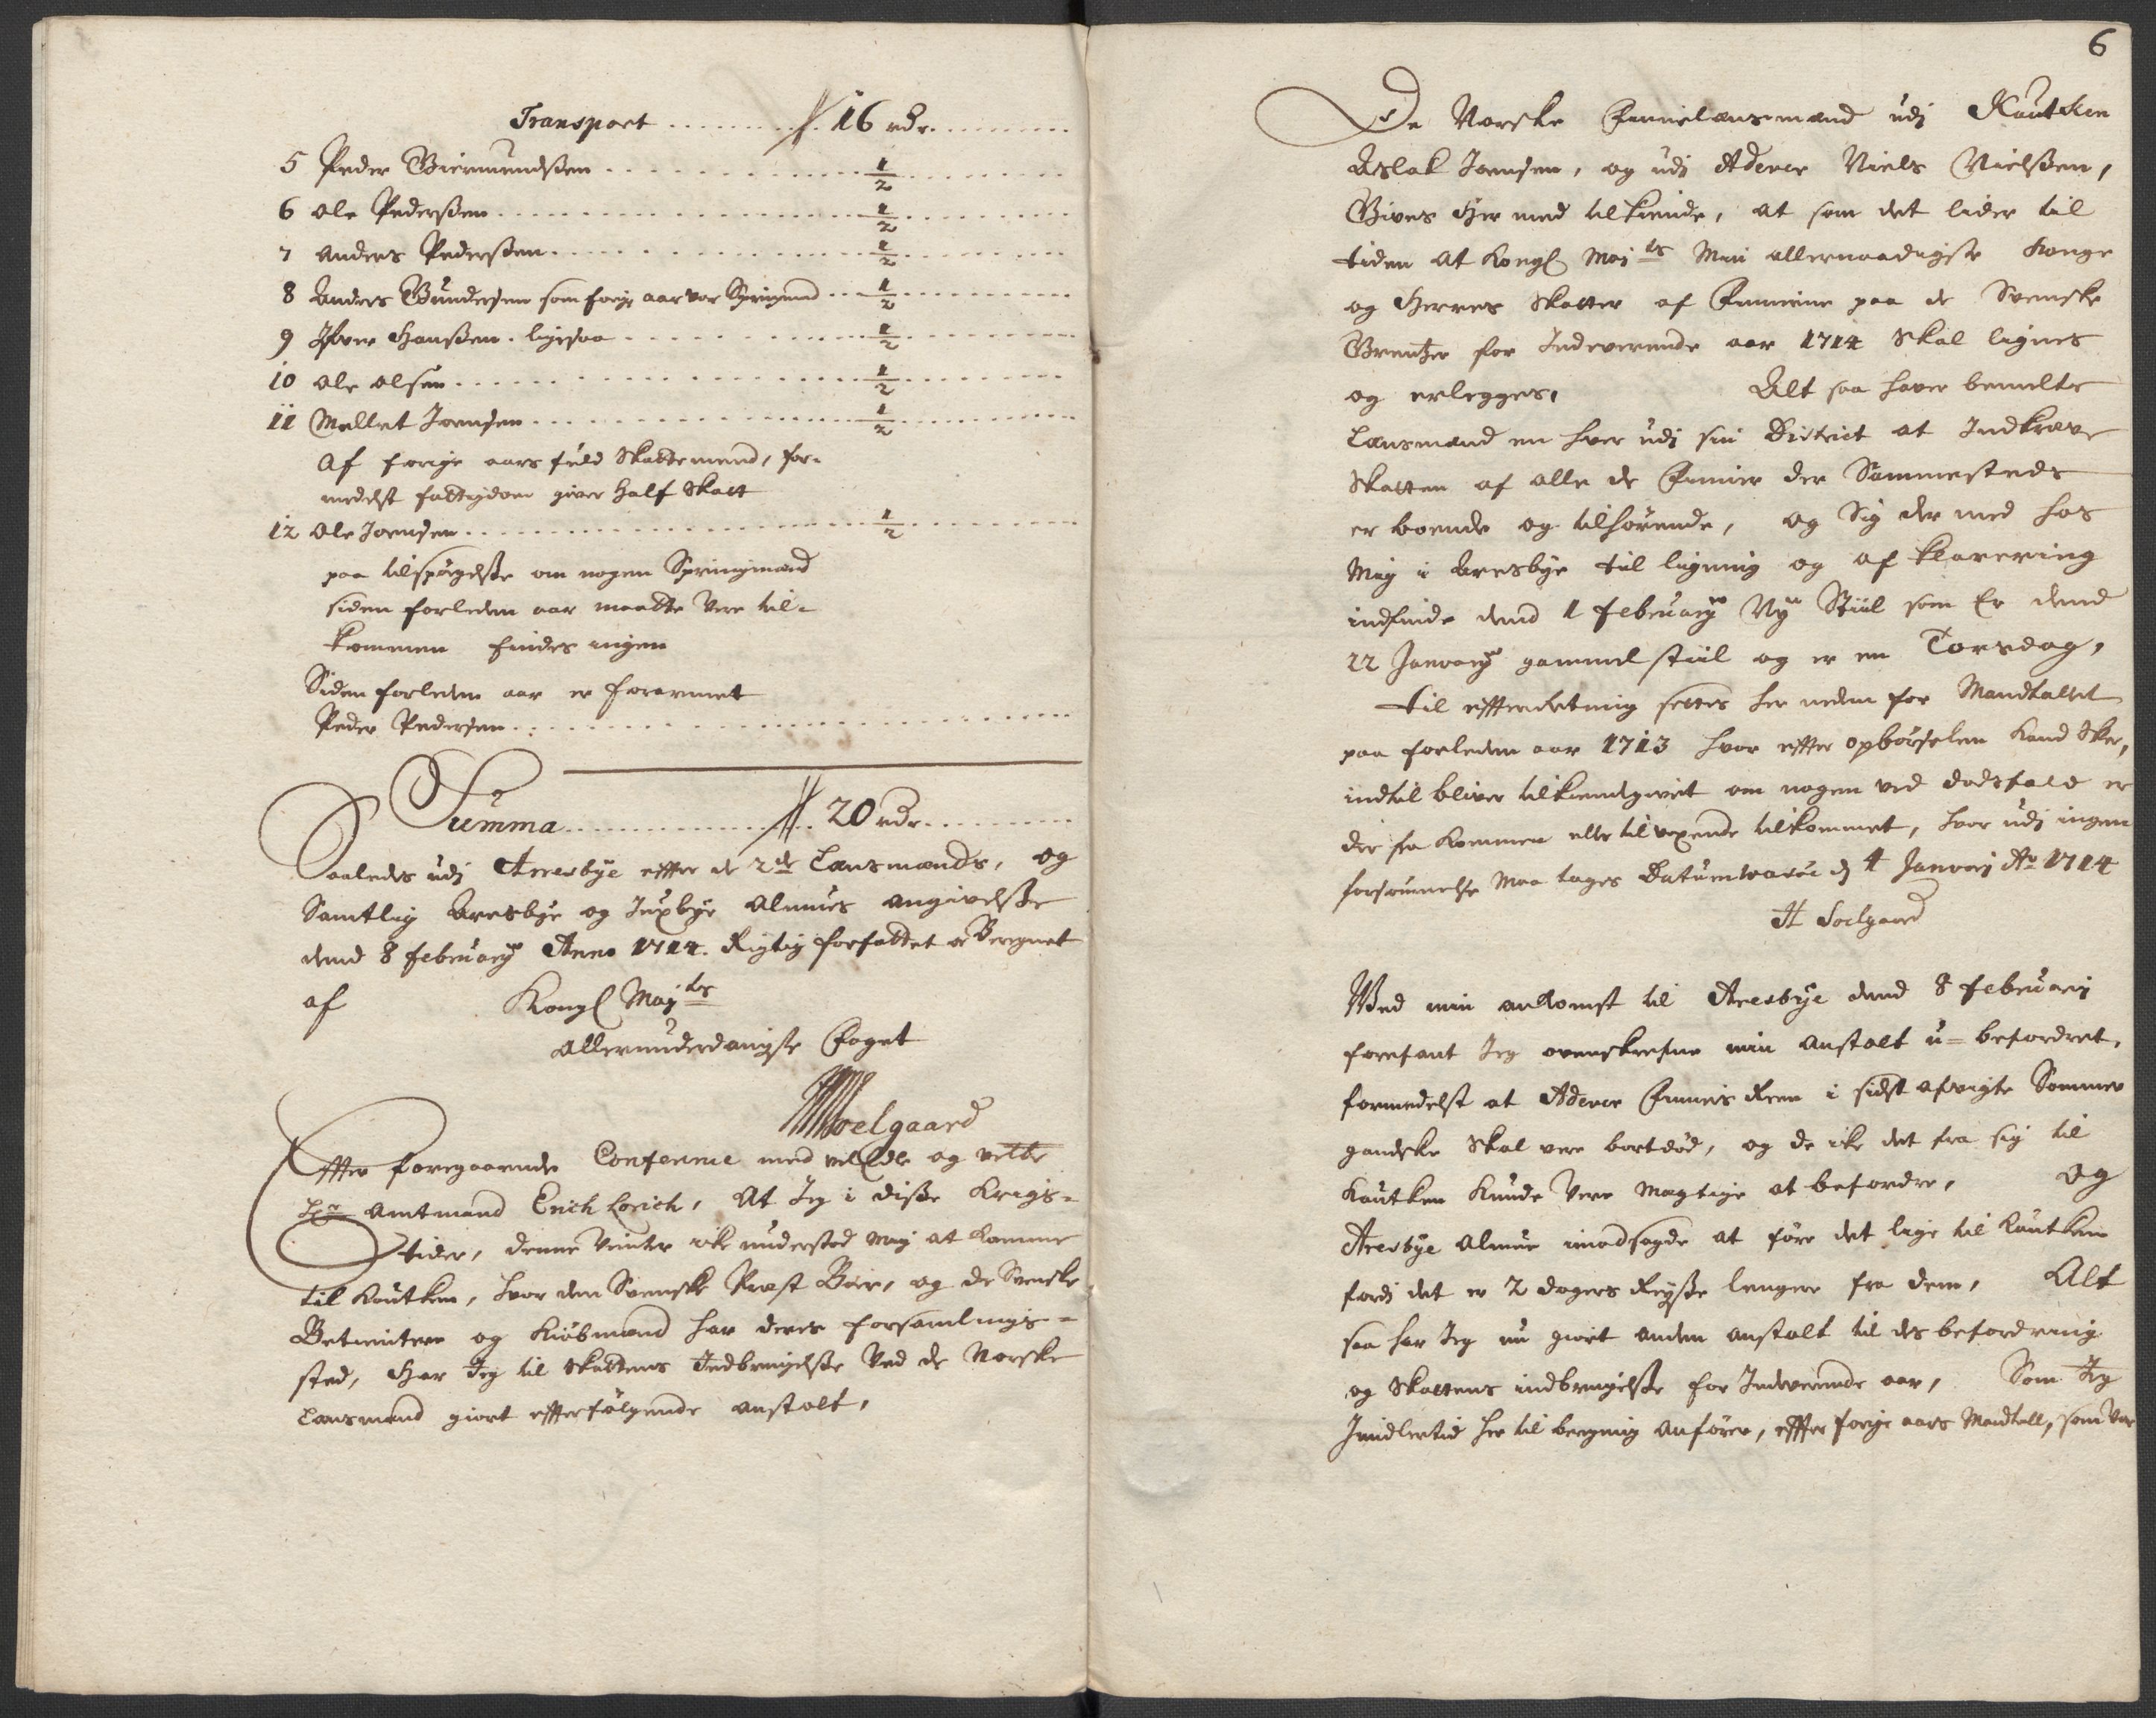 Transport ........ 16 rdr.
5 Peder Giermundsen ........ 1/2
6 Ole Pedersen ........ 1/2
7 Anders Pedersen ........ 1/2
8 Anders Gundersen som forige aar var Springmand ... 1/2
9 Ifver Hansßen. ligesaa ........ 1/2
10 Ole Olsen ........ 1/2
11 Mellet Joensen ........ 1/2
Af forige aars fuld Skattemend, for-
medelst fattigdom giver Half Skatt
12 Ole Joensen ........ 1/2
paa tilspørgelße om nogen Springmand
siden forleden aar maatte Vere til-
kommen findes ingen
Siden forleden aar er forarmet
Peder Pedersen ........
Summa ........ 20 rdr.
Saaledes udj Arresbÿe effter de 2de Lansmænds, og
Samtlig Aresbÿe og Juxbÿe Almues angivelße
dend 8 februarij Anno 1714. Rigtig forfattet og Beregnet
af Kongl Maÿts
Allerunderdanigste Foget
Soelgaard
Effter foregaaende Conference med velEdle og vette
Hr Amtmand Erich Lorich, At Jeg i diße Krigs-
tider, denne Vinter icke understod Mig at komme
til Koutken, hvor den Svenske Præst Boer, og de Svenske
Betienter og Kiøbmænd har deres forsamlings-
sted, Har Jeg til Skattens Indbringelße Ved de Norske
Lansmænd giort effterfølgende anstalt,
6
De Norske Finnelænsmænd udj Koutken
Aslak Joensen, og udj Aderee Niels Nielßen,
Gives Her med tilkiende, at som det lider til
tiden at Kongl Maÿts Min allernaadigste Konge
og Herres Skatter af Finnerne paa de Svenske
Grentzer for Indeverende aar 1714 Skal lignes
og erlegges, Alt saa haver bemelte
Lansmænd en hver udj sin District at Indkræve
Skatten af alle de Finner der Sammesteds
er boende og tilhørende, og Sig der med hos
Mig i Aresbÿe til ligning og af klarering
indfinde dend 1 februarÿ Nÿ Stiil som Er dend
22 Januarÿ gammel stiil og er en Torsdag,
til effterretning settes her neden for Mandtallet
paa forleden aar 1713 hvor effter opbørselen kand Skee,
indtil bliver tilkiendgivet om nogen ved dødsfald er
der fra kommen eller til voxende tilkommet, hvor udj ingen
forsømmelse Maa tages Datum Wasøe dj 4 Januarj Ao 1714
H Soelgaard
Wed min ankomst til Aresbÿe dend 8 februarij
forefant Jeg ovenskrefne min anstalt u-befordret,
formedelst at Aderee Finners Reen i sidst afvigte Sommer
gandske Skal vere bortdød, og de icke det fra sig til
Koutken kunde Vere Magtige at befordre, og
Aresbÿe Almue imodsagde at føre det lige til Koutken
fordj det er 2 dagers Reÿße lengere fra dem, Alt
saa har Jeg nu giort anden anstalt til des befordring
og Skattens indbringelße for Indeverende aar, Som Jeg
Imidlertid her til beregning anfører, effter forige aars Mandtall, som var